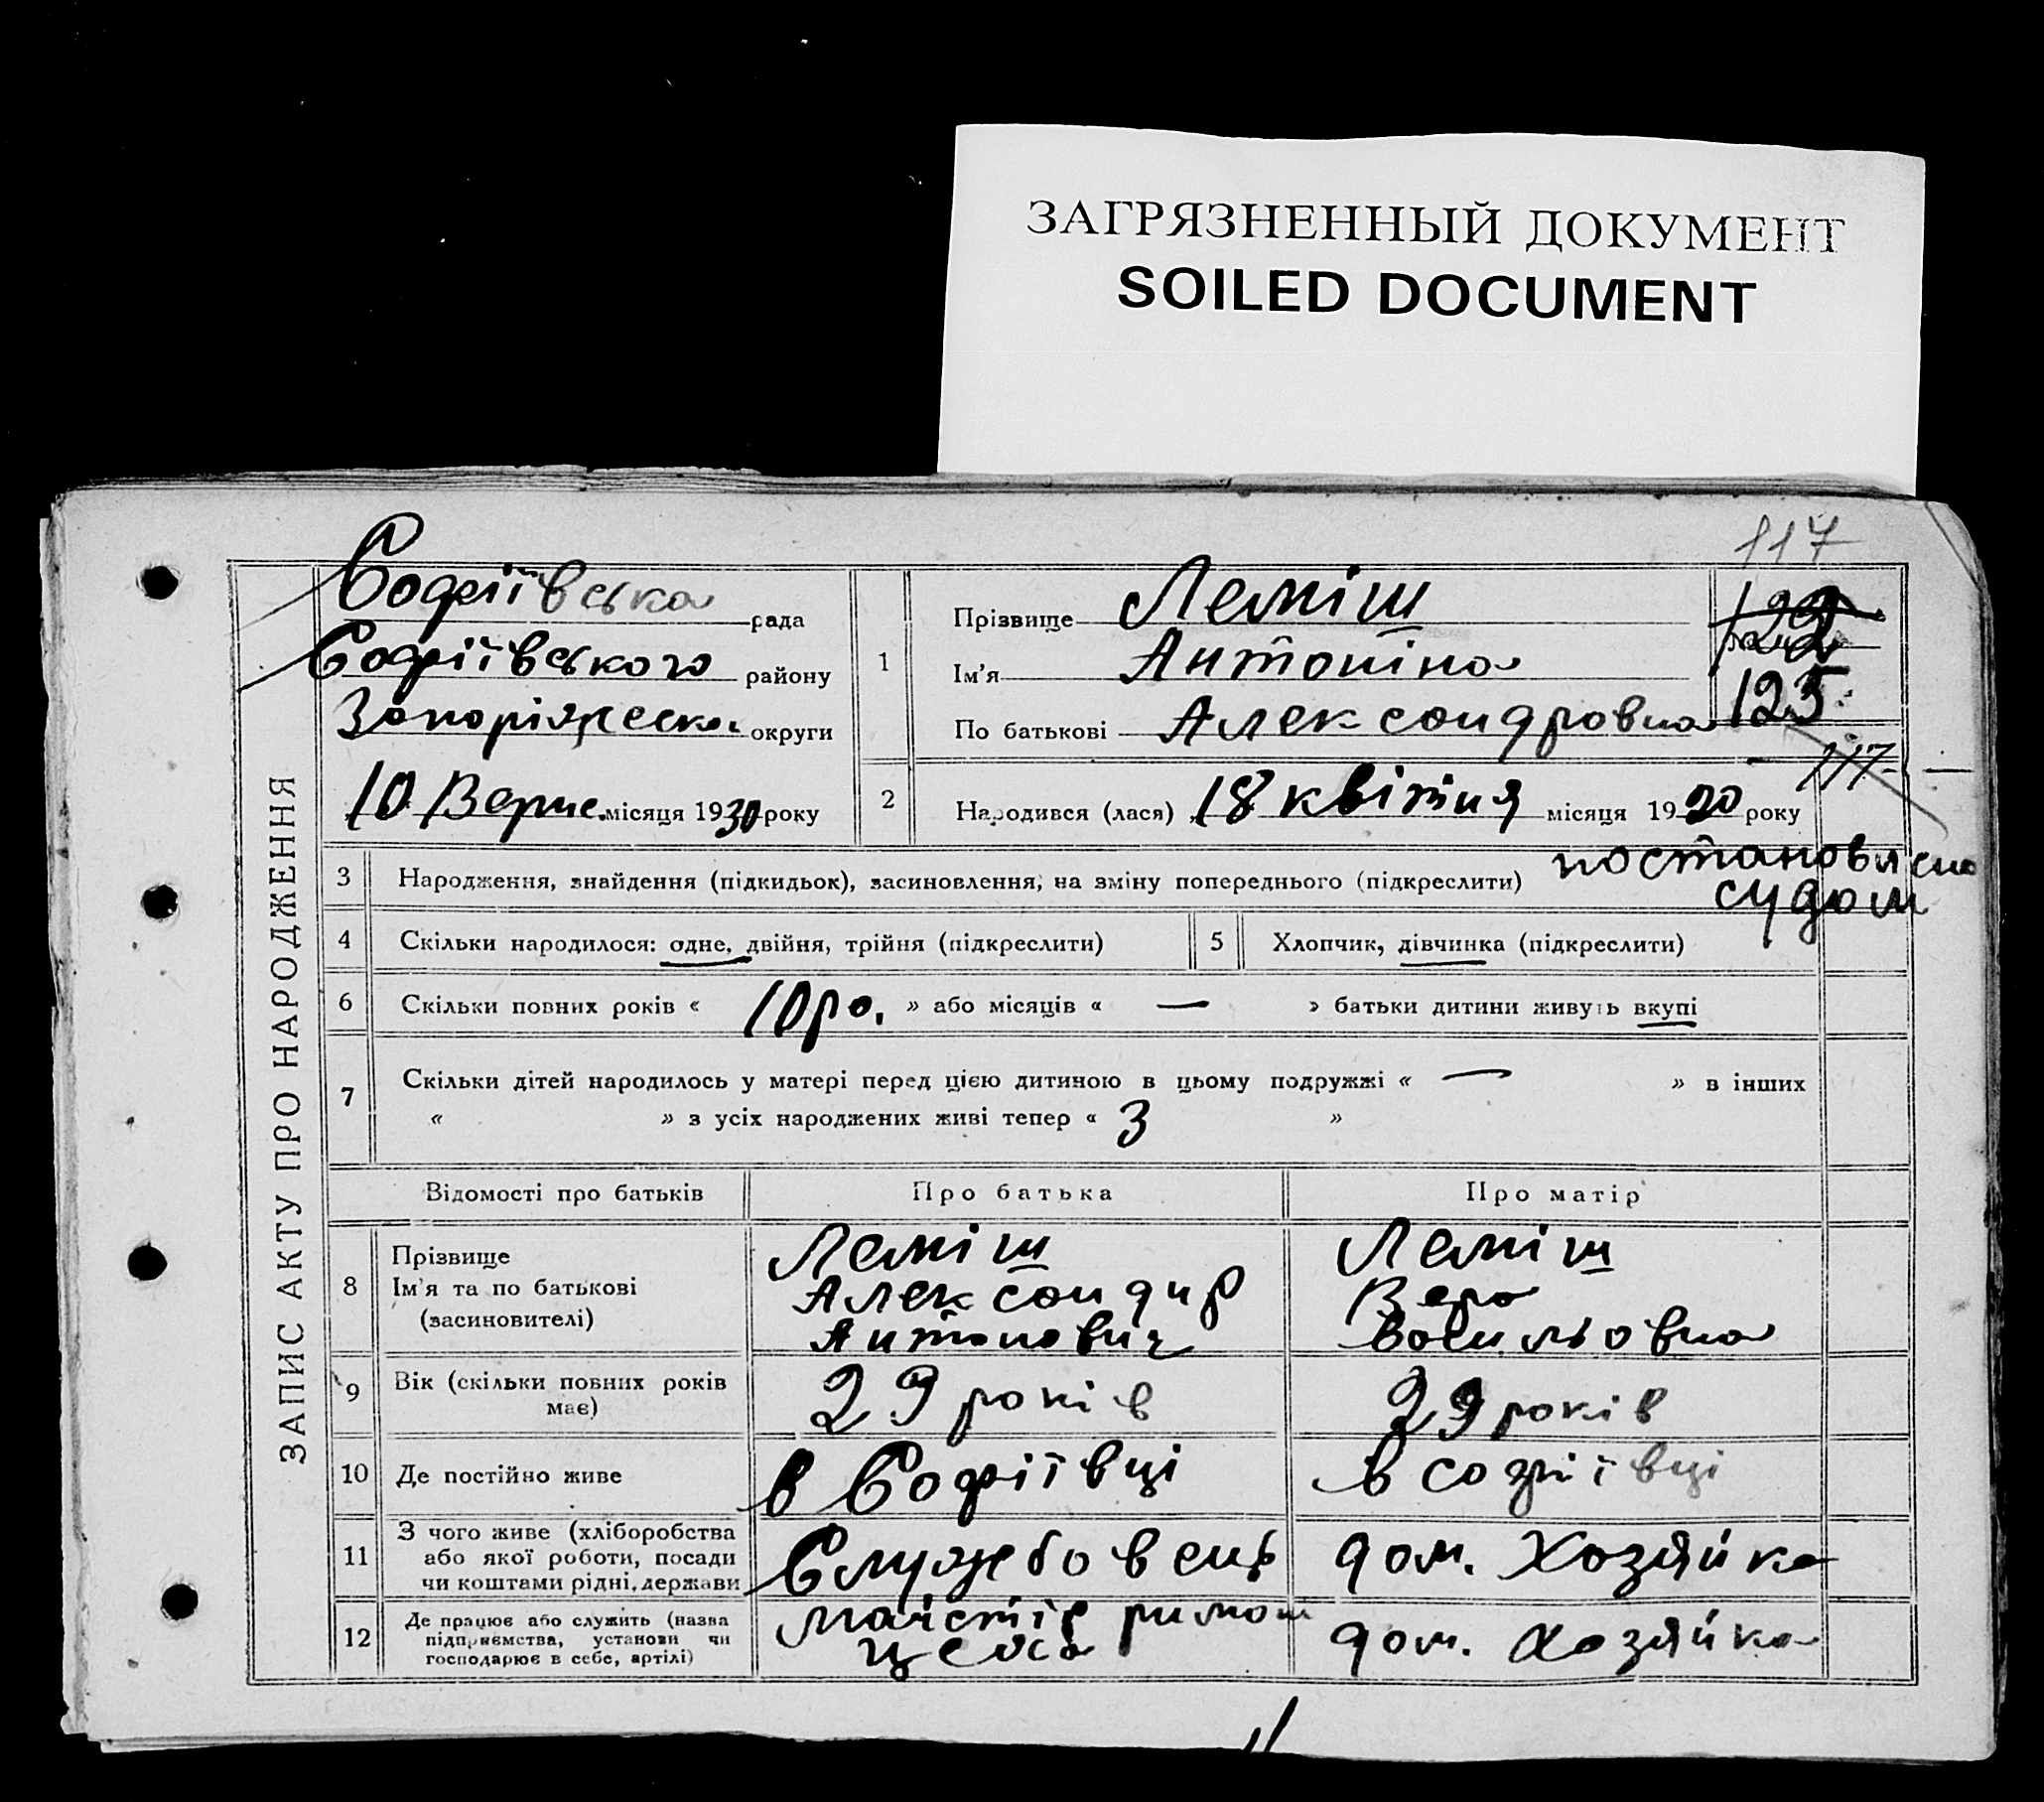 ЗАГРЯЗНЕННЫЙ ДОКУМЕНТ
SOILED DOCUMENT
117
ЗАПИС АКТУ ПРО НАРОДЖЕННЯ
Софіївська рада
Софіївського району
Запоріжськ округи
10 Верис. місяця 1930 року
1
Прізвище Леміш
Ім'я Антоніна
По батькові Александровна
122
125
117
2
Народився (лася) „18 квітня місяця 1920 року
3 Народження, знайдення (підкидьок), засиновлення, на зміну попереднього (підкреслити) постановлено
судом
4 Скільки народилося: одне, двійня, трійня (підкреслити)
5 Хлопчик, дівчинка (підкреслити)
6 Скільки повних років « 10 ро. » або місяців « — » батьки дитини живуть вкупі
7 Скільки дітей народилось у матері перед цією дитиною в цьому подружжі « — » в інших
« » з усіх народжених живі тепер « 3 »
Відомості про батьків Про батька Про матір
8
Прізвище Леміш Леміш
Ім'я та по батькові Александир Вера
(засиновителі) Антонович Васильовна
9 Вік (скільки повних років має) 29 років 29 років
10 Де постійно живе в Софіївці в Софіївці
11
З чого живе (хліборобства
або якої роботи, посади
чи коштами рідні, держави
Службовець дом. Хозяйка
12
Де працює або служить (назва
підприємства, установи чи
господарює в себе, артілі)
майстір
дом. Хозяйка